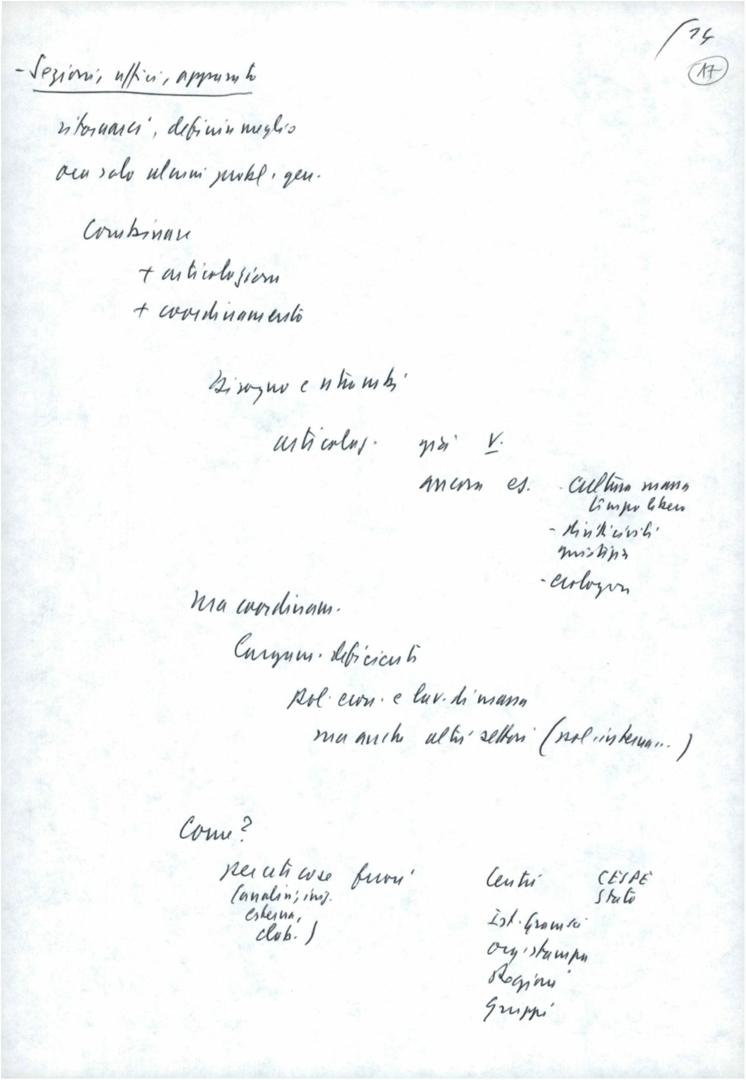 14
17
- Sezioni, uffici, apparato
ritornarci, definire meglio
ora solo alcuni probl. gen.
Combinare
+ articolazioni
+ coordinamento
Bisogno e
articolaz. già V.
ancora es. - cultura massa
tempo libero
- diritti civili
giustizia
- ecologia
Ma coordinam.
Lungam. deficienti
pol. econ. e lav. di massa
ma anche altri settori (pol. interna...)
Come?
per certi cose fuori
(analisi,
esterna,
elab.)
Centri CESPE
Stato
Ist. Gramsci
org. stampa
Regioni
Gruppi